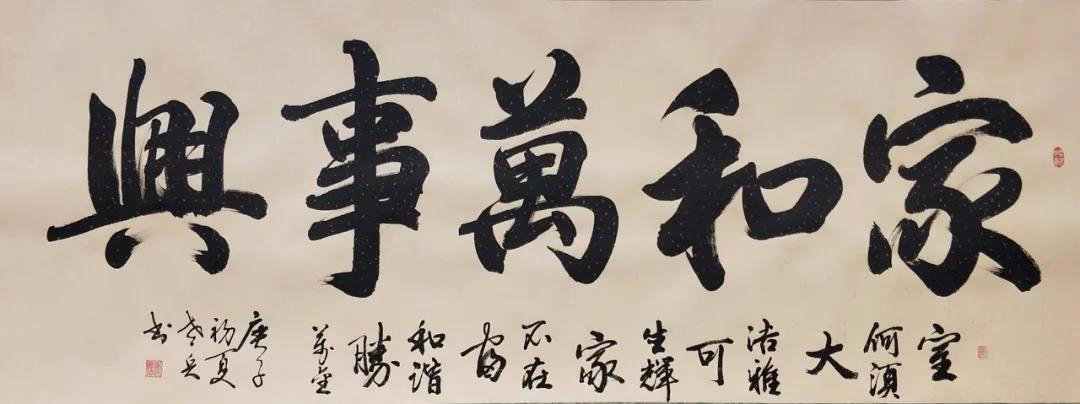 家和萬事興
室
何須
大
洁雅
可
生輝
家
不在
富
和谐
勝
萬金
庚子
初夏
兵
书